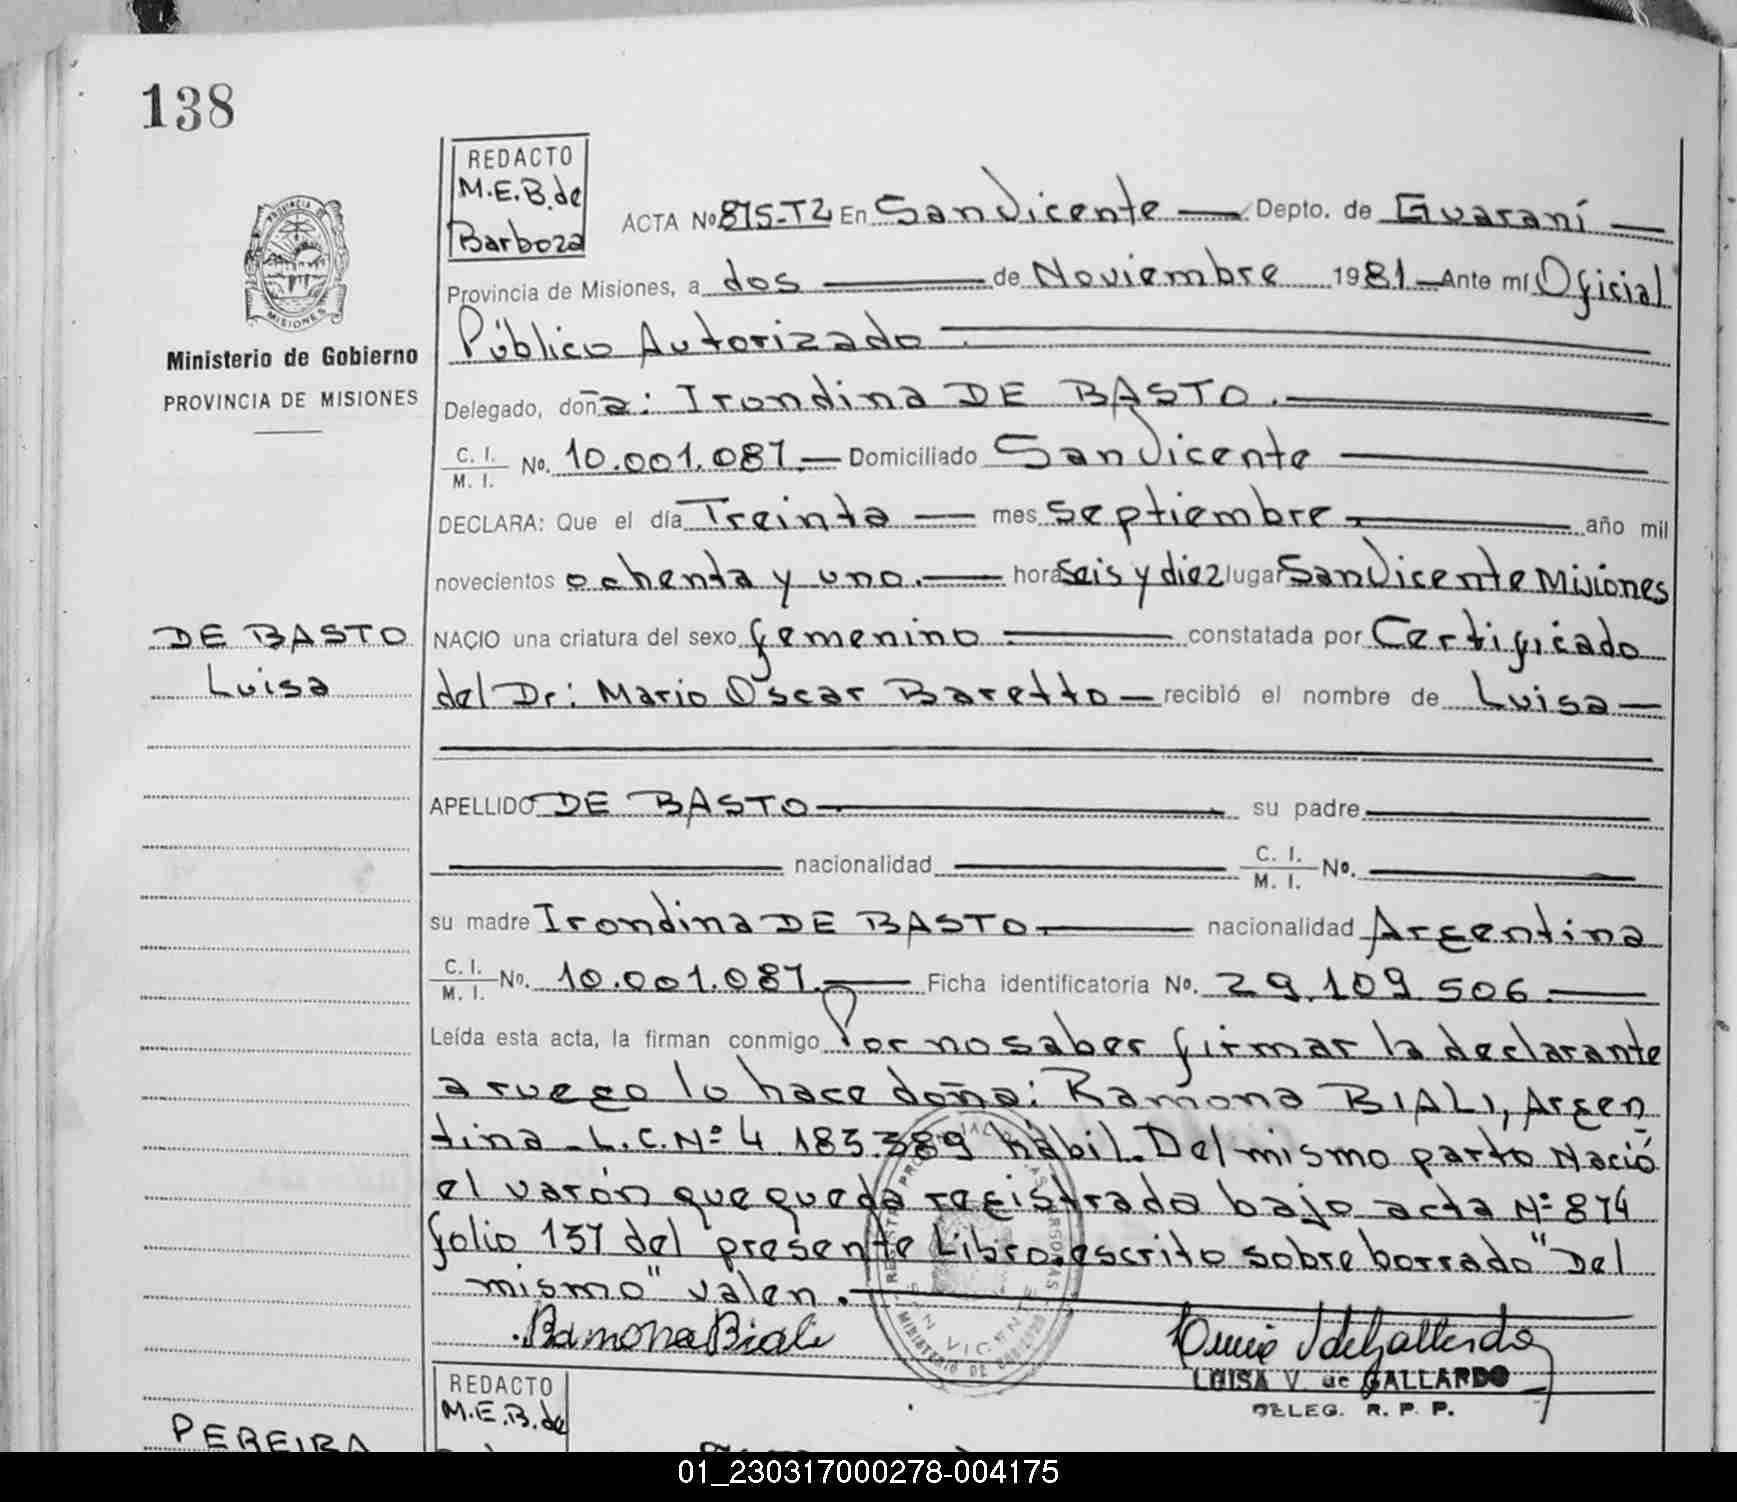 138
REDACTO
M.E.B. de
Barboza
ACTA Nº 875-T2 En San Vicente — Depto. de Guaraní —
Provincia de Misiones, a dos — de Noviembre 1981 — Ante mí Oficial
Público Autorizado
Delegado, doña: Irondina DE BASTO.
C. I. / M. I. No. 10.001.087. — Domiciliado San Vicente
DECLARA: Que el día Treinta — mes septiembre — año mil
novecientos ochenta y uno. — hora seis y diez lugar San Vicente Misiones
NACIO una criatura del sexo femenino — constatada por Certificado
del Dr: Mario Oscar Baretto — recibió el nombre de Luisa —
APELLIDO DE BASTO — su padre —
— nacionalidad — C. I. / M. I. No. —
su madre Irondina DE BASTO — nacionalidad Argentina
C. I. / M. I. No. 10.001.087. — Ficha identificatoria No. 29.109.506 —
Leída esta acta, la firman conmigo Por no saber firmar la declarante
a ruego lo hace doña: Ramona BIALI, Argen
tina - L.C. Nº 4.183.389 hábil. Del mismo parto Nació
el varón que queda registrado bajo acta Nº 874
folio 137 del presente Libro. escrito sobre borrado "Del
mismo" valen. —
Ramona Biali
LUISA V. de GALLARDO
DELEG. R. P. P.
PROVINCIA DE
MISIONES
Ministerio de Gobierno
PROVINCIA DE MISIONES
DE BASTO
Luisa
SAN VICENTE
REDACTO
M.E.B. de
PEREIRA
01_230317000278-004175